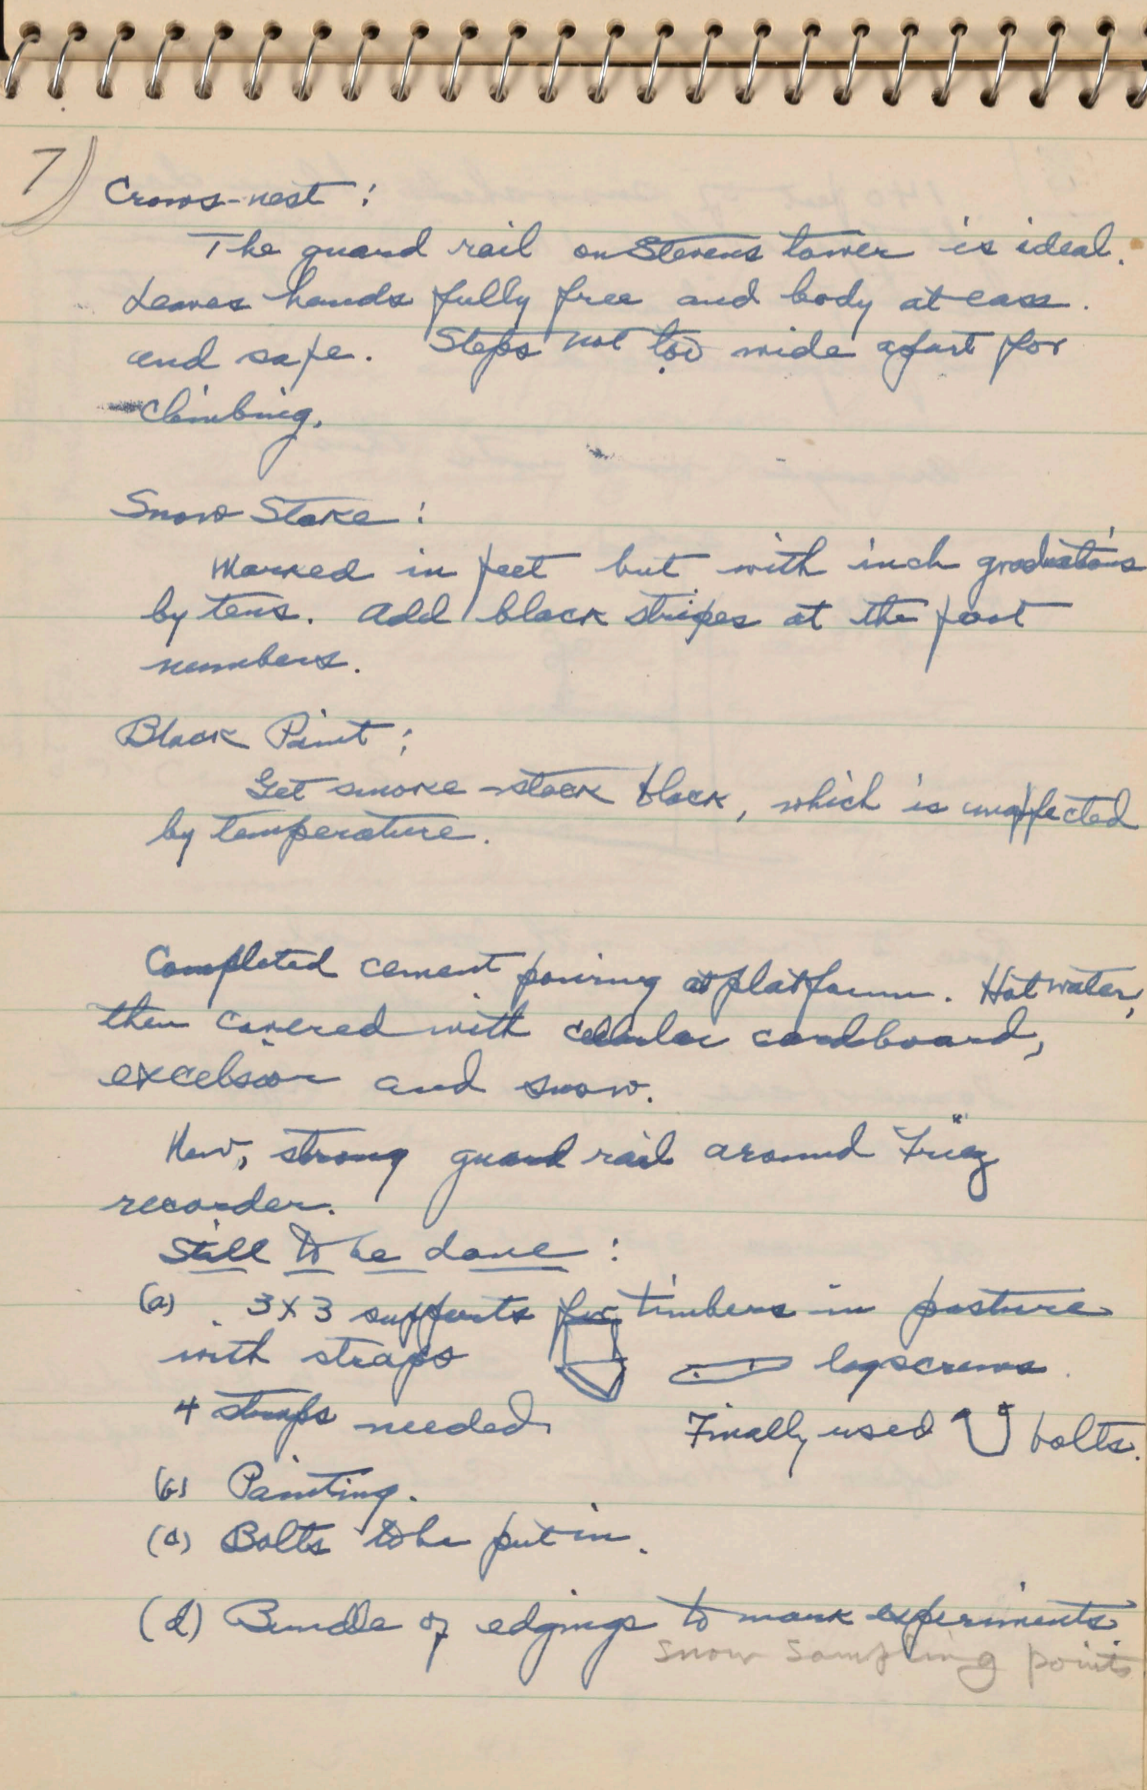 7)
Crows-nest:
The guard rail on Stevens tower is ideal.
Leaves hands fully free and body at ease.
and safe. Steps not too wide apart for
climbing.
Snow Stake:
Marked in feet but with inch graduations
by tens. Add black stripes at the foot
numbers.
Black Paint:
Get smoke-stack black, which is unaffected
by temperature.
Completed cement pouring at platform. Hot water,
then covered with cellular cardboard,
excelsior and snow.
New, strong guard rail around Friez
recorder.
Still to be done:
(a) 3x3 supports for timbers in pasture
with straps lagscrews.
4 straps needed. Finally used bolts.
(b) Painting.
(c) Bolts to be put in.
(d) Bundle of edgings to mark experiments
snow sampling points